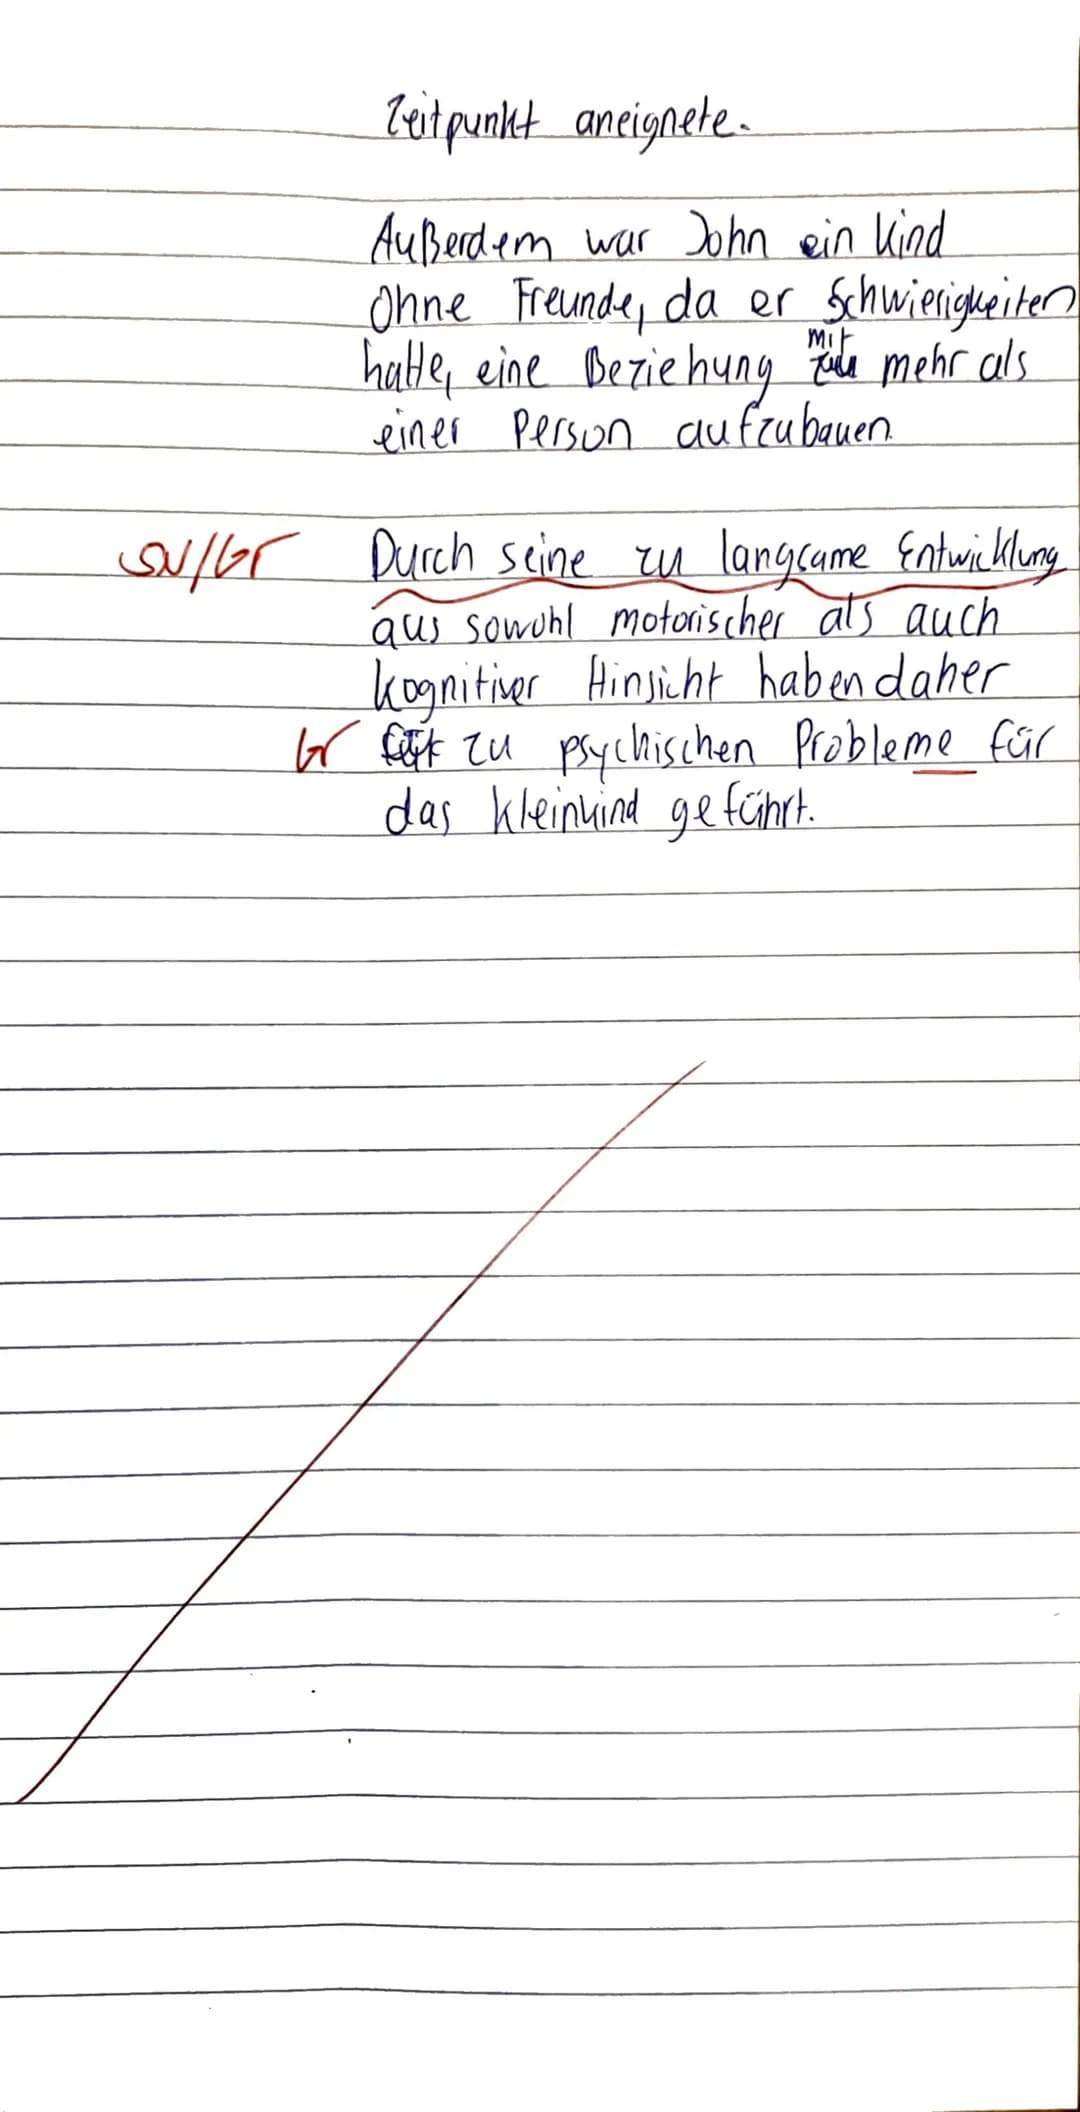 Zeitpunkt aneignete.
Außerdem war John ein Kind
Ohne Freunde, da er Schwierigkeiten
hatte, eine Beziehung mit mehr als
einer Person aufzubauen.
SV/Gr Durch seine zu langsame Entwicklung
aus sowohl motorischer als auch
kognitiver Hinsicht haben daher
Gr zu psychischen Probleme für
das Kleinkind geführt.